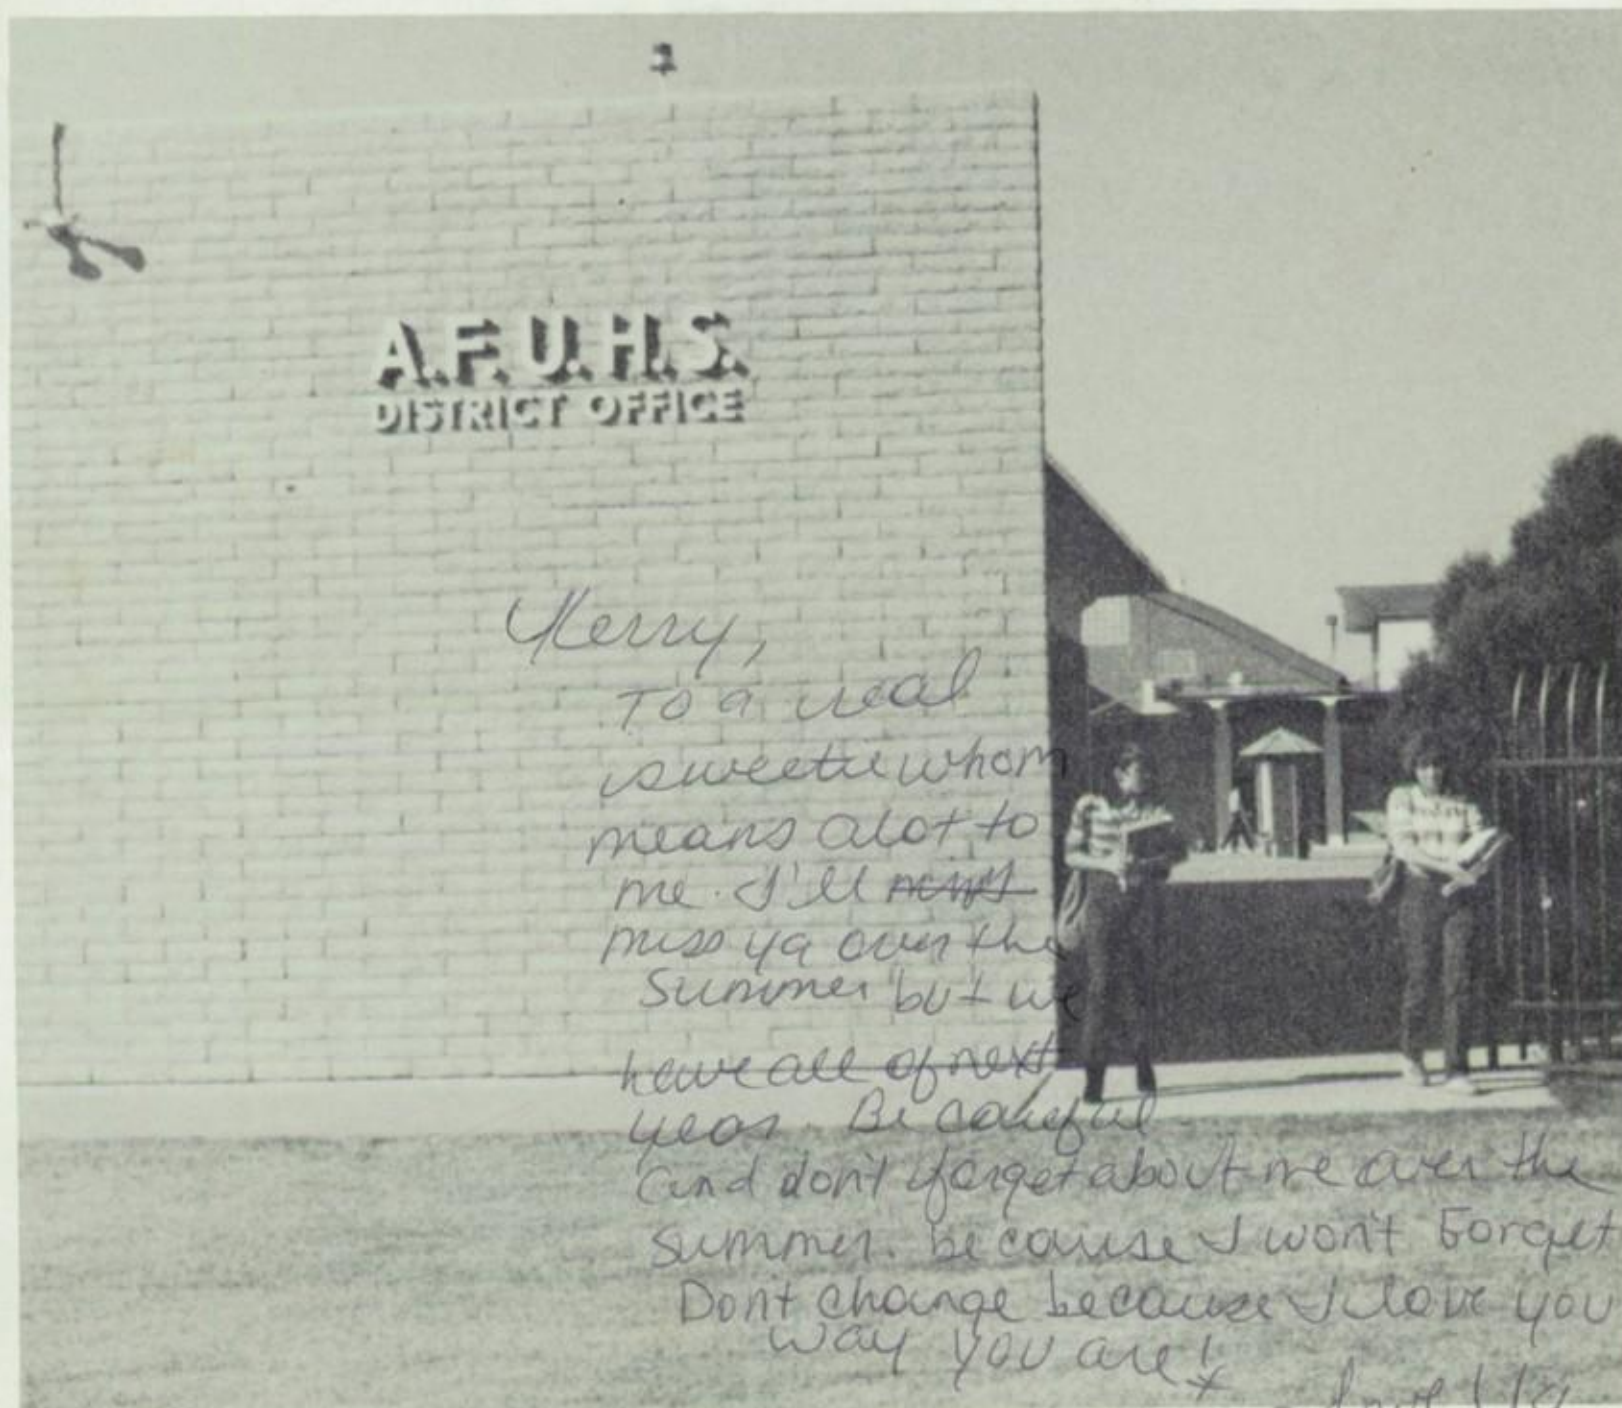 A.F.U.H.S.
DISTRICT OFFICE
Kerry,
To a real
sweetie whom
means alot to
me. I'll
miss ya over the
Summer but we
have all of next
year. Be careful
and don't forget about me over the
summer. because I won't Forget
Dont change because I love you
way you are!